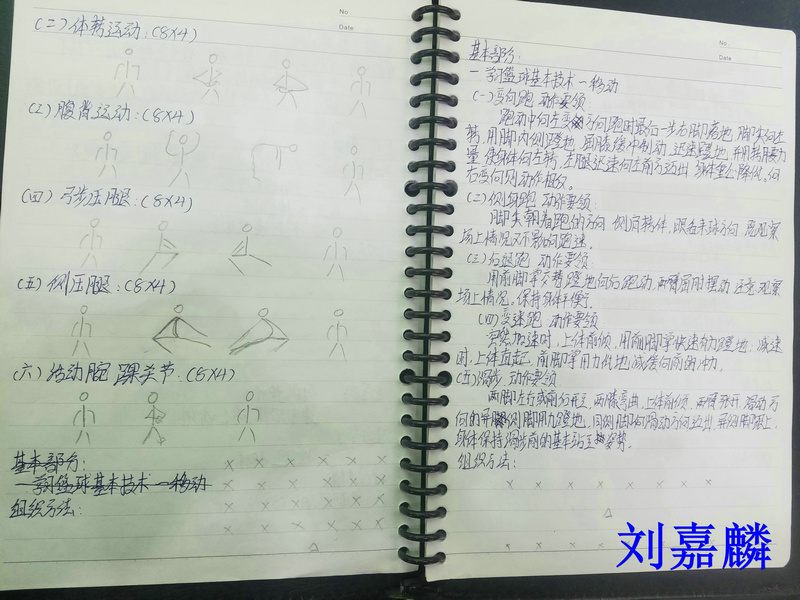 No.
Date
(二)体转运动:(8×4)
(三)腹背运动:(8×4)
(四)弓步压腿:(8×4)
(五)侧压腿:(8×4)
(六)活动腕 踝关节:(8×4)
基本部分:
一学习篮球基本技术一移动
组织方法:
No.
Date
基本部分:
一学习篮球基本技术一移动
(一)变向跑 动作要领
跑动中向左变方向跑时最后一步右脚着地,脚尖向左
转,用脚内侧蹬地,屈膝缓冲制动,迅速蹬地,并用转腰力
量,使身体向左转,左腿迅速向左前方迈出,身体重心降低。向
右变向则动作相反。
(二)侧身跑 动作要领:
脚尖朝着跑的方向,侧肩转体,跟着来球方向,既观察
场上情况又不影响跑速。
(三)后退跑 动作要领:
用前脚掌交替蹬地向后跑动,两臂屈肘摆动,注意观察
场上情况。保持身体平衡。
(四)变速跑 动作要领
突然加速时,上体前倾,用前脚掌快速有力蹬地;减速
时,上体直起,前脚掌用力抵地,减缓向前的冲力。
(五)滑步 动作要领:
两脚左右或前后开立,两膝弯曲,上体前倾,两臂张开,滑动方
向的异侧脚用力蹬地,同侧脚向滑动方向迈出,异侧脚跟上,
身体保持滑步前的基本站立姿势。
组织方法:
刘嘉麟